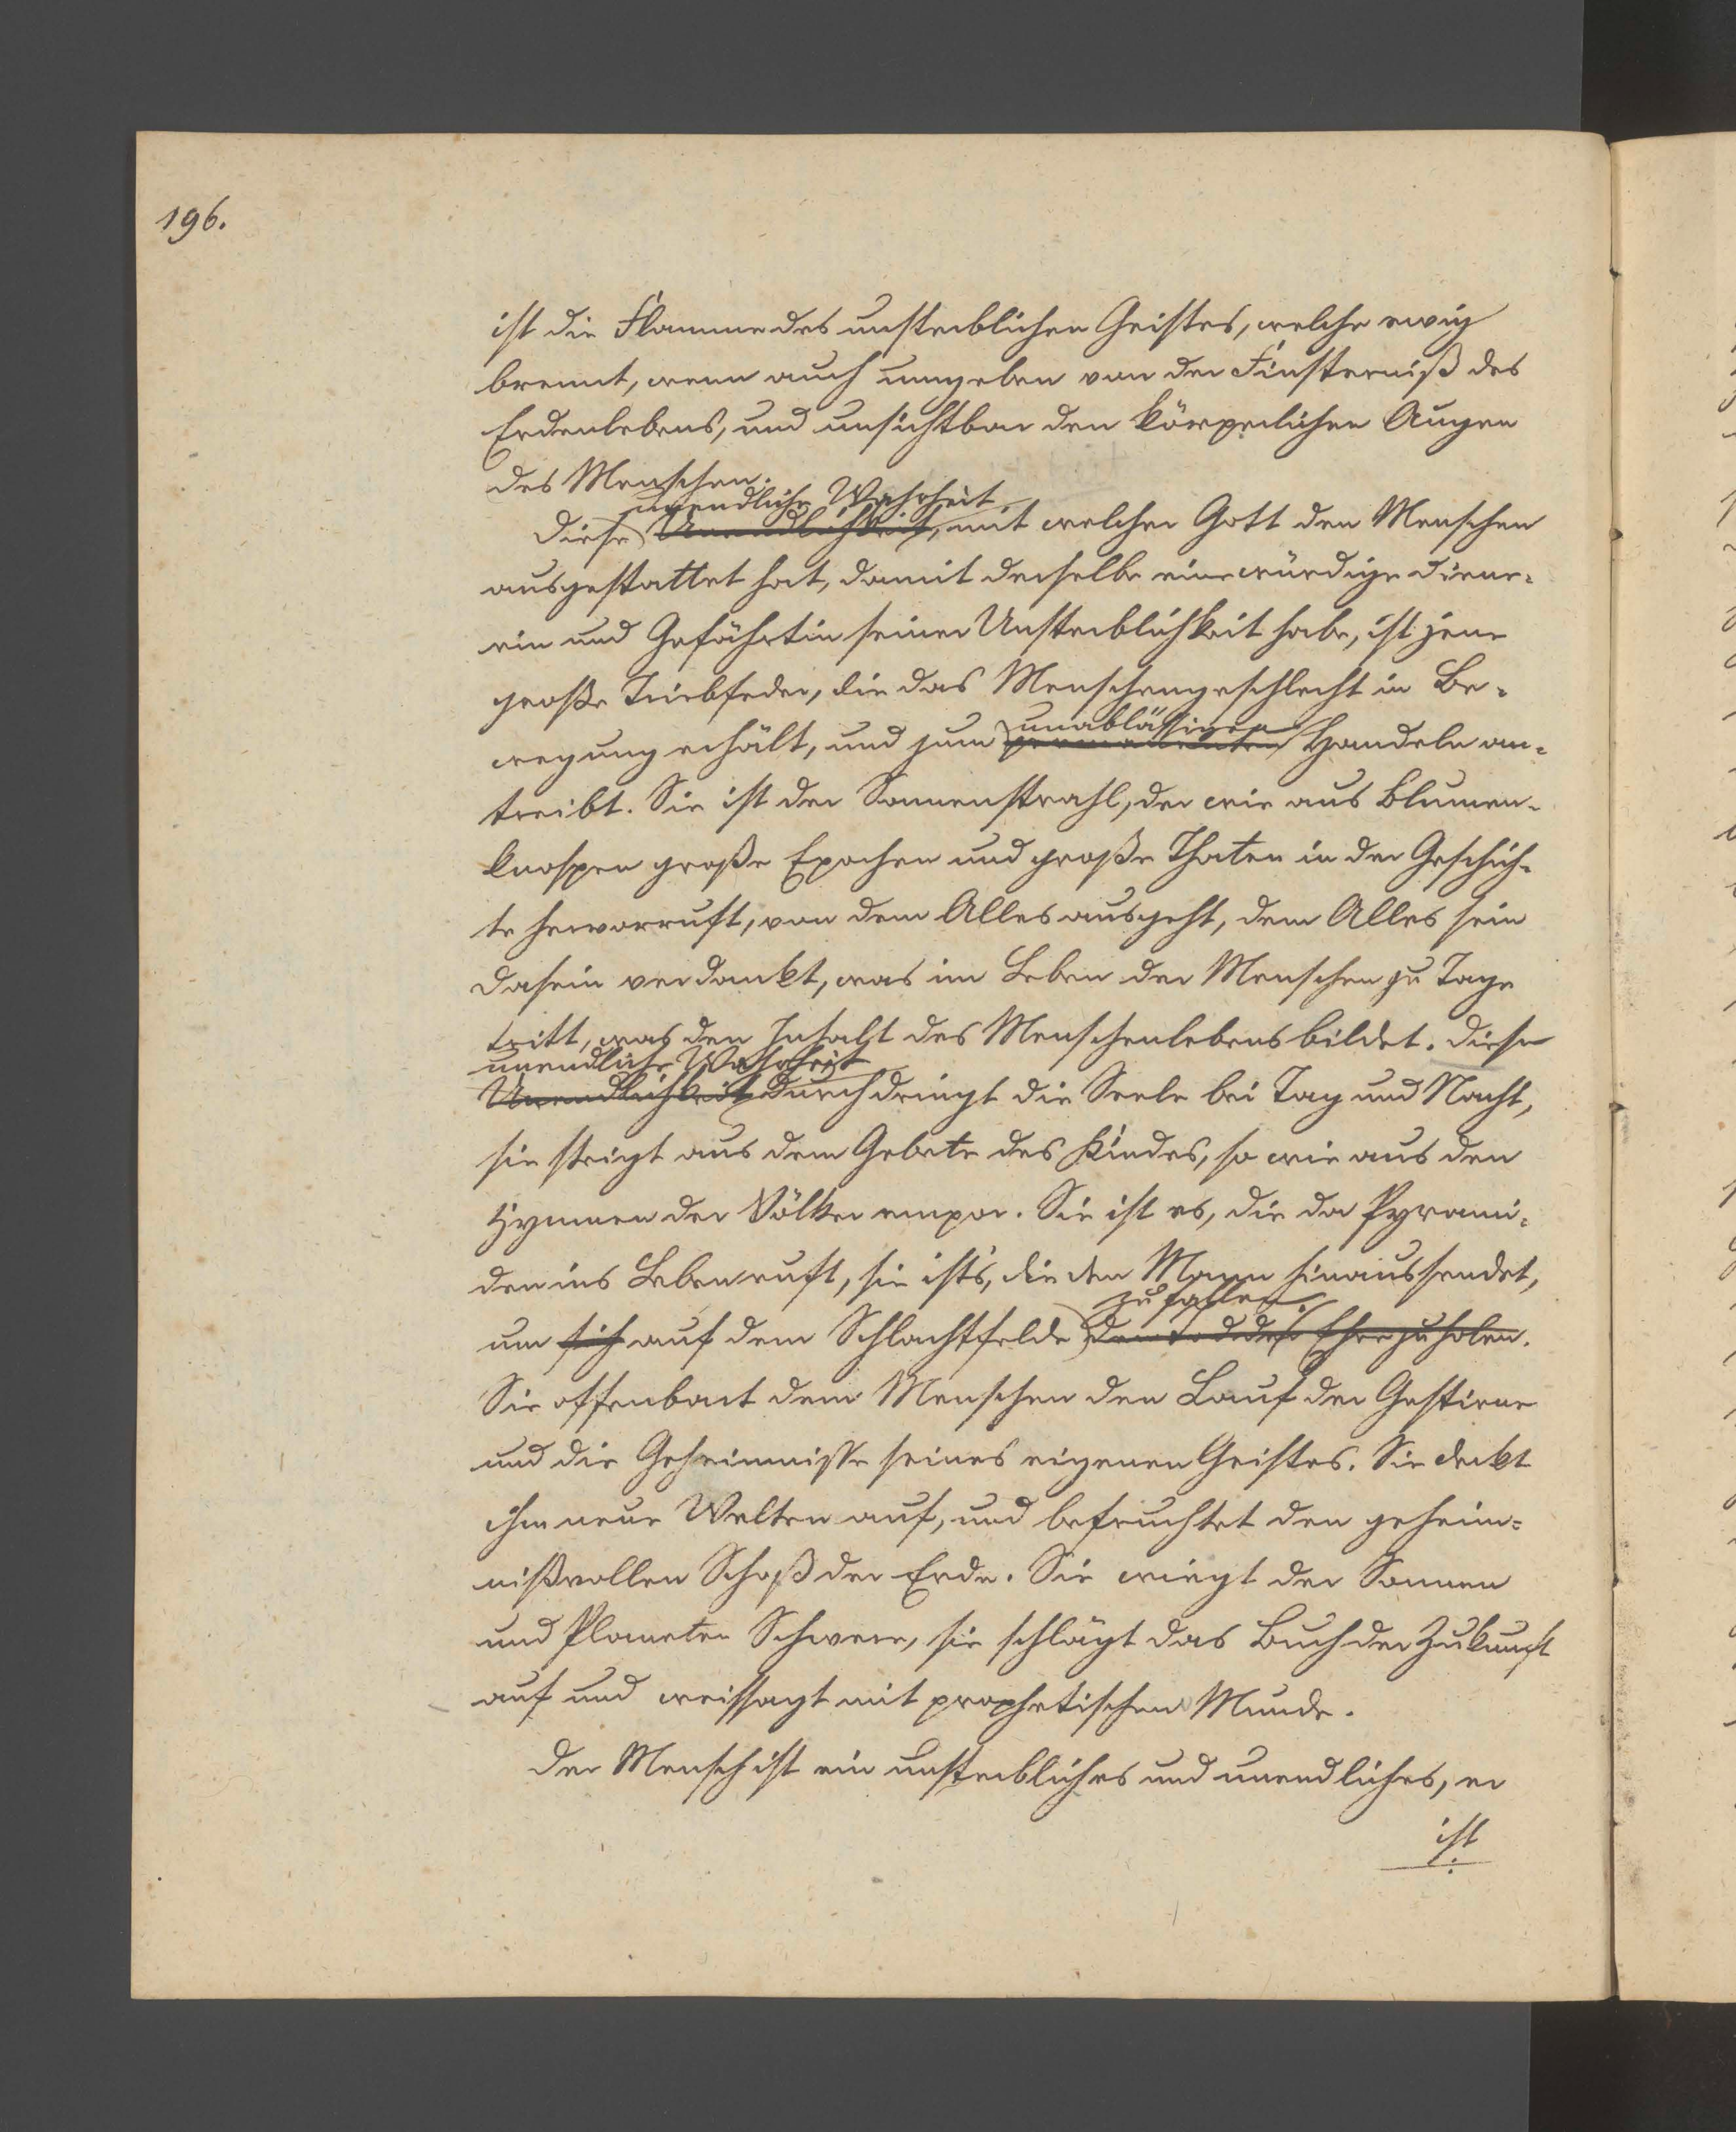 196.
ist die Flamme des unsterblichen Geistes, welche ewig
brennt, wenn auch umgeben von der Finsterniß des
Erdenlebens, und unsichtbar den körperlichen Augen
des Menschen.
unendliche Wahrheit
Diese Unendlichkeit, mit welcher Gott den Menschen
ausgestattet hat, damit derselbe eine würdige Diene-
rin und Gefährtin seiner Unsterblichkeit habe, ist jene
große Triebfeder, die das Menschengeschlecht in Be-
unablässigen
wegung erhält, und zum permanenten Handeln an-
treibt. Sie ist der Sonnenstrahl, der wie aus Blumen-
knospen große Epochen und große Thaten in der Geschich-
te hervorruft, von dem Alles ausgeht, dem Alles sein
Dasein verdankt, was im Leben der Menschen zu Tage
tritt, was den Inhalt des Menschenlebens bildet. Diese
unendliche Wahrheit
Unendlichkeit durchdringt die Seele bei Tag und Nacht,
sie steigt aus dem Gebete des Kindes, so wie aus den
Hymnen der Völker empor. Sie ist es, die da Pyrami-
den ins Leben ruft, sie ist's, die den Mann hinaussendet,
zu fallen.
um sich auf dem Schlachtfelde den Tod der Ehre zu holen.
Sie offenbart dem Menschen den Lauf der Gestirne
und die Geheimnisse seines eigenen Geistes. Sie deckt
ihm neue Welten auf, und befruchtet den geheim-
nißvollen Schoß der Erde. Sie wiegt der Sonnen
und Planeten Schwere, sie schlägt das Buch der Zukunft
auf und weissagt mit prophetischem Munde.
Der Mensch ist ein unsterbliches und unendliches, er
ist